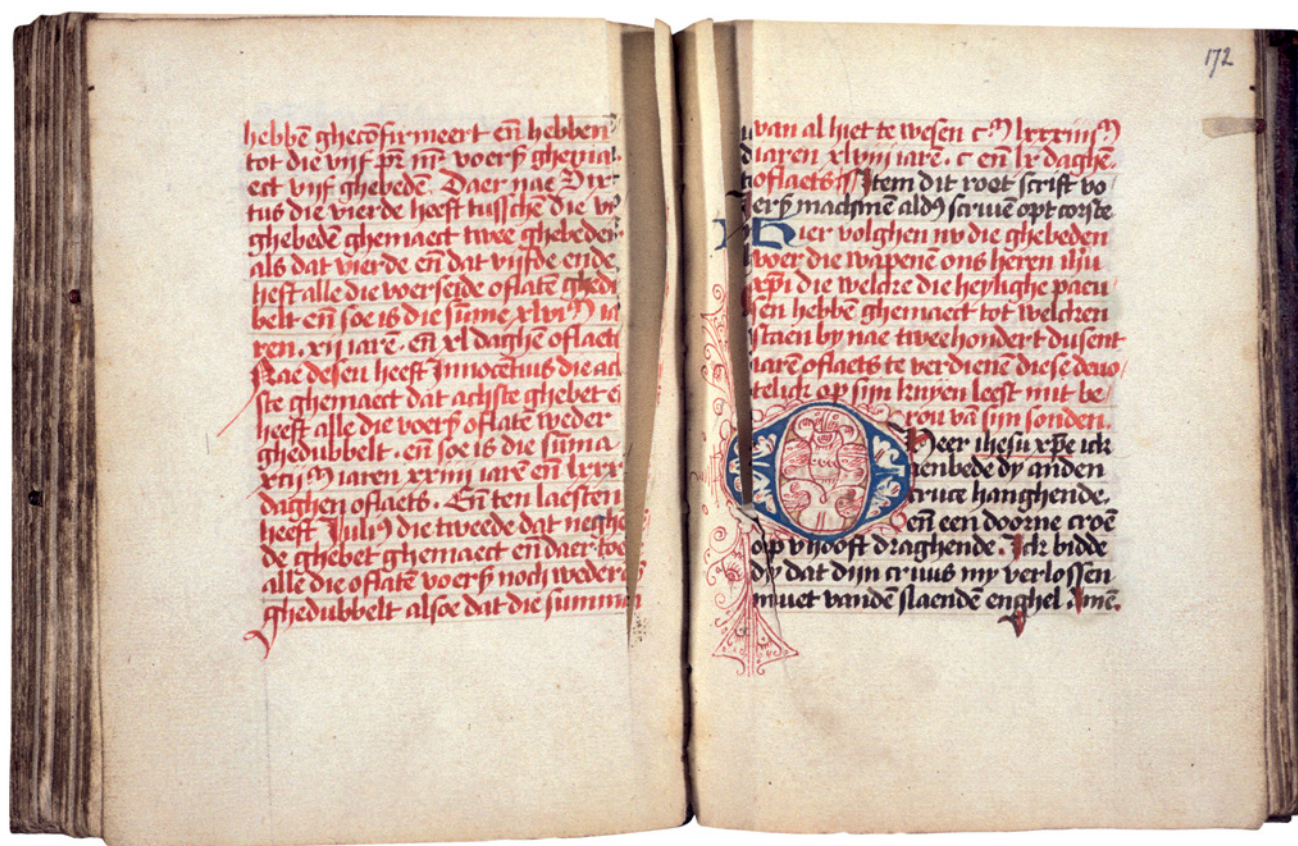 hebbē ghecōfirmeert eñ hebben
tot die vijf pr̄ nr̄ voerß ghema
ect vijf ghebedē. Daer nae Six
tus die vierde heeft tusschē die vß
ghebedē ghemaect twee ghebeden
als dat vierde eñ dat vijfde ende
heft alle die voerseide oflatē ghedu
belt eñ soe is die sūme xlviᵐ ia
ren. xij iarē. eñ xl daghē oflaets
Nae desen heeft Innocētius die ach
ste ghemaect dat achste ghebet eñ
heeft alle die voerß oflatē weder
ghedubbelt. eñ soe is die sūma
xcijᵐ iaren xxiiij iarē eñ lxxx
daghen oflaets. Eñ ten laesten
heeft Juliꝰ die tweede dat neghe
de ghebet ghemaect eñ daer toe
alle die oflatē voerß noch weder
ghedubbelt alsoe dat die summa
172
van al hiet te wesen cᵐ lxxxiiijᵐ
iaren xlviij iarē. c eñ lx daghē.
oflaets Item dit roet scrift vo
erß machmē aldꝰ scriuē opt corste
Hier volghen nv die ghebeden
voer die wapenē ons heren ihū
xp̄i die welcke die heylighe paeu
sen hebbē ghemaect tot welcken
staen by nae tweehondert dusent
iarē oflaets te verdienē diese deuo
telick op sijn knyen leest mit be
rou vā sijn sonden.
O Heer ihesu xp̄e ick
aenbede dy anden
cruce hanghende.
eñ een doorne croē
op v hooft draghende. Ick bidde
dy dat dijn cruus my verlossen
muet vandē slaendē enghel. Amē.